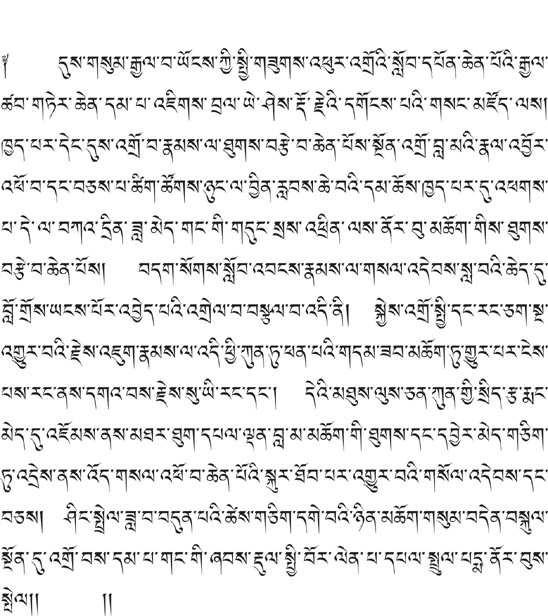 ༄ དུས་གསུམ་རྒྱལ་བ་ཡོངས་ཀྱི་སྤྱི་གཟུགས་འཕུར་འགྲོའི་སློབ་དཔོན་ཆེན་པོའི་རྒྱལ་
ཚབ་གཏེར་ཆེན་དམ་པ་འཇིགས་བྲལ་ཡེ་ཤེས་རྡོ་རྗེའི་དགོངས་པའི་གསང་མཛོད་ལས།
ཁྱད་པར་དེང་དུས་འགྲོ་བ་རྣམས་ལ་ཐུགས་བརྩེ་བ་ཆེན་པོས་སྔོན་འགྲོ་བླ་མའི་རྣལ་འབྱོར་
འཕོ་བ་དང་བཅས་པ་ཚིག་ཚོགས་ཉུང་ལ་བྱིན་རླབས་ཆེ་བའི་དམ་ཆོས་ཁྱད་པར་དུ་འཕགས་
པ་དེ་ལ་བཀའ་དྲིན་ཟླ་མེད་གང་གི་གདུང་སྲས་འཕྲིན་ལས་ནོར་བུ་མཆོག་གིས་ཐུགས་
བརྩེ་བ་ཆེན་པོས། བདག་སོགས་སློབ་འབངས་རྣམས་ལ་གསལ་འདེབས་སླ་བའི་ཆེད་དུ་
བློ་གྲོས་ཡངས་པོར་འབྱེད་པའི་འགྲེལ་བ་བསྩལ་བ་འདི་ནི། སྐྱེས་འགྲོ་སྤྱི་དང་རང་ཅག་སྔ་
འགྱུར་བའི་རྗེས་འཇུག་རྣམས་ལ་འདི་ཕྱི་ཀུན་ཏུ་ཕན་པའི་གདམ་ཟབ་མཆོག་ཏུ་གྱུར་པར་ངེས་
པས་རང་ནས་དགའ་བས་རྗེས་སུ་ཡི་རང་དང་། དེའི་མཐུས་ལུས་ཅན་ཀུན་གྱི་སྲིད་རྩ་རྨང་
མེད་དུ་འཇོམས་ནས་མཐར་ཐུག་དཔལ་ལྡན་བླ་མ་མཆོག་གི་ཐུགས་དང་དབྱེར་མེད་གཅིག་
ཏུ་འདྲེས་ནས་འོད་གསལ་འཕོ་བ་ཆེན་པོའི་སྐུར་ཐོབ་པར་འགྱུར་བའི་གསོལ་འདེབས་དང་
བཅས། ཤིང་སྤྲེལ་ཟླ་བ་བདུན་པའི་ཚེས་གཅིག་དགེ་བའི་ཉིན་མཆོག་གསུམ་བདེན་བསྐུལ་
སྔོན་དུ་འགྲོ་བས་དམ་པ་གང་གི་ཞབས་རྡུལ་སྤྱི་བོར་ལེན་པ་དཔལ་སྤྲུལ་པདྨ་ནོར་བུས་
སྤེལ།། །།